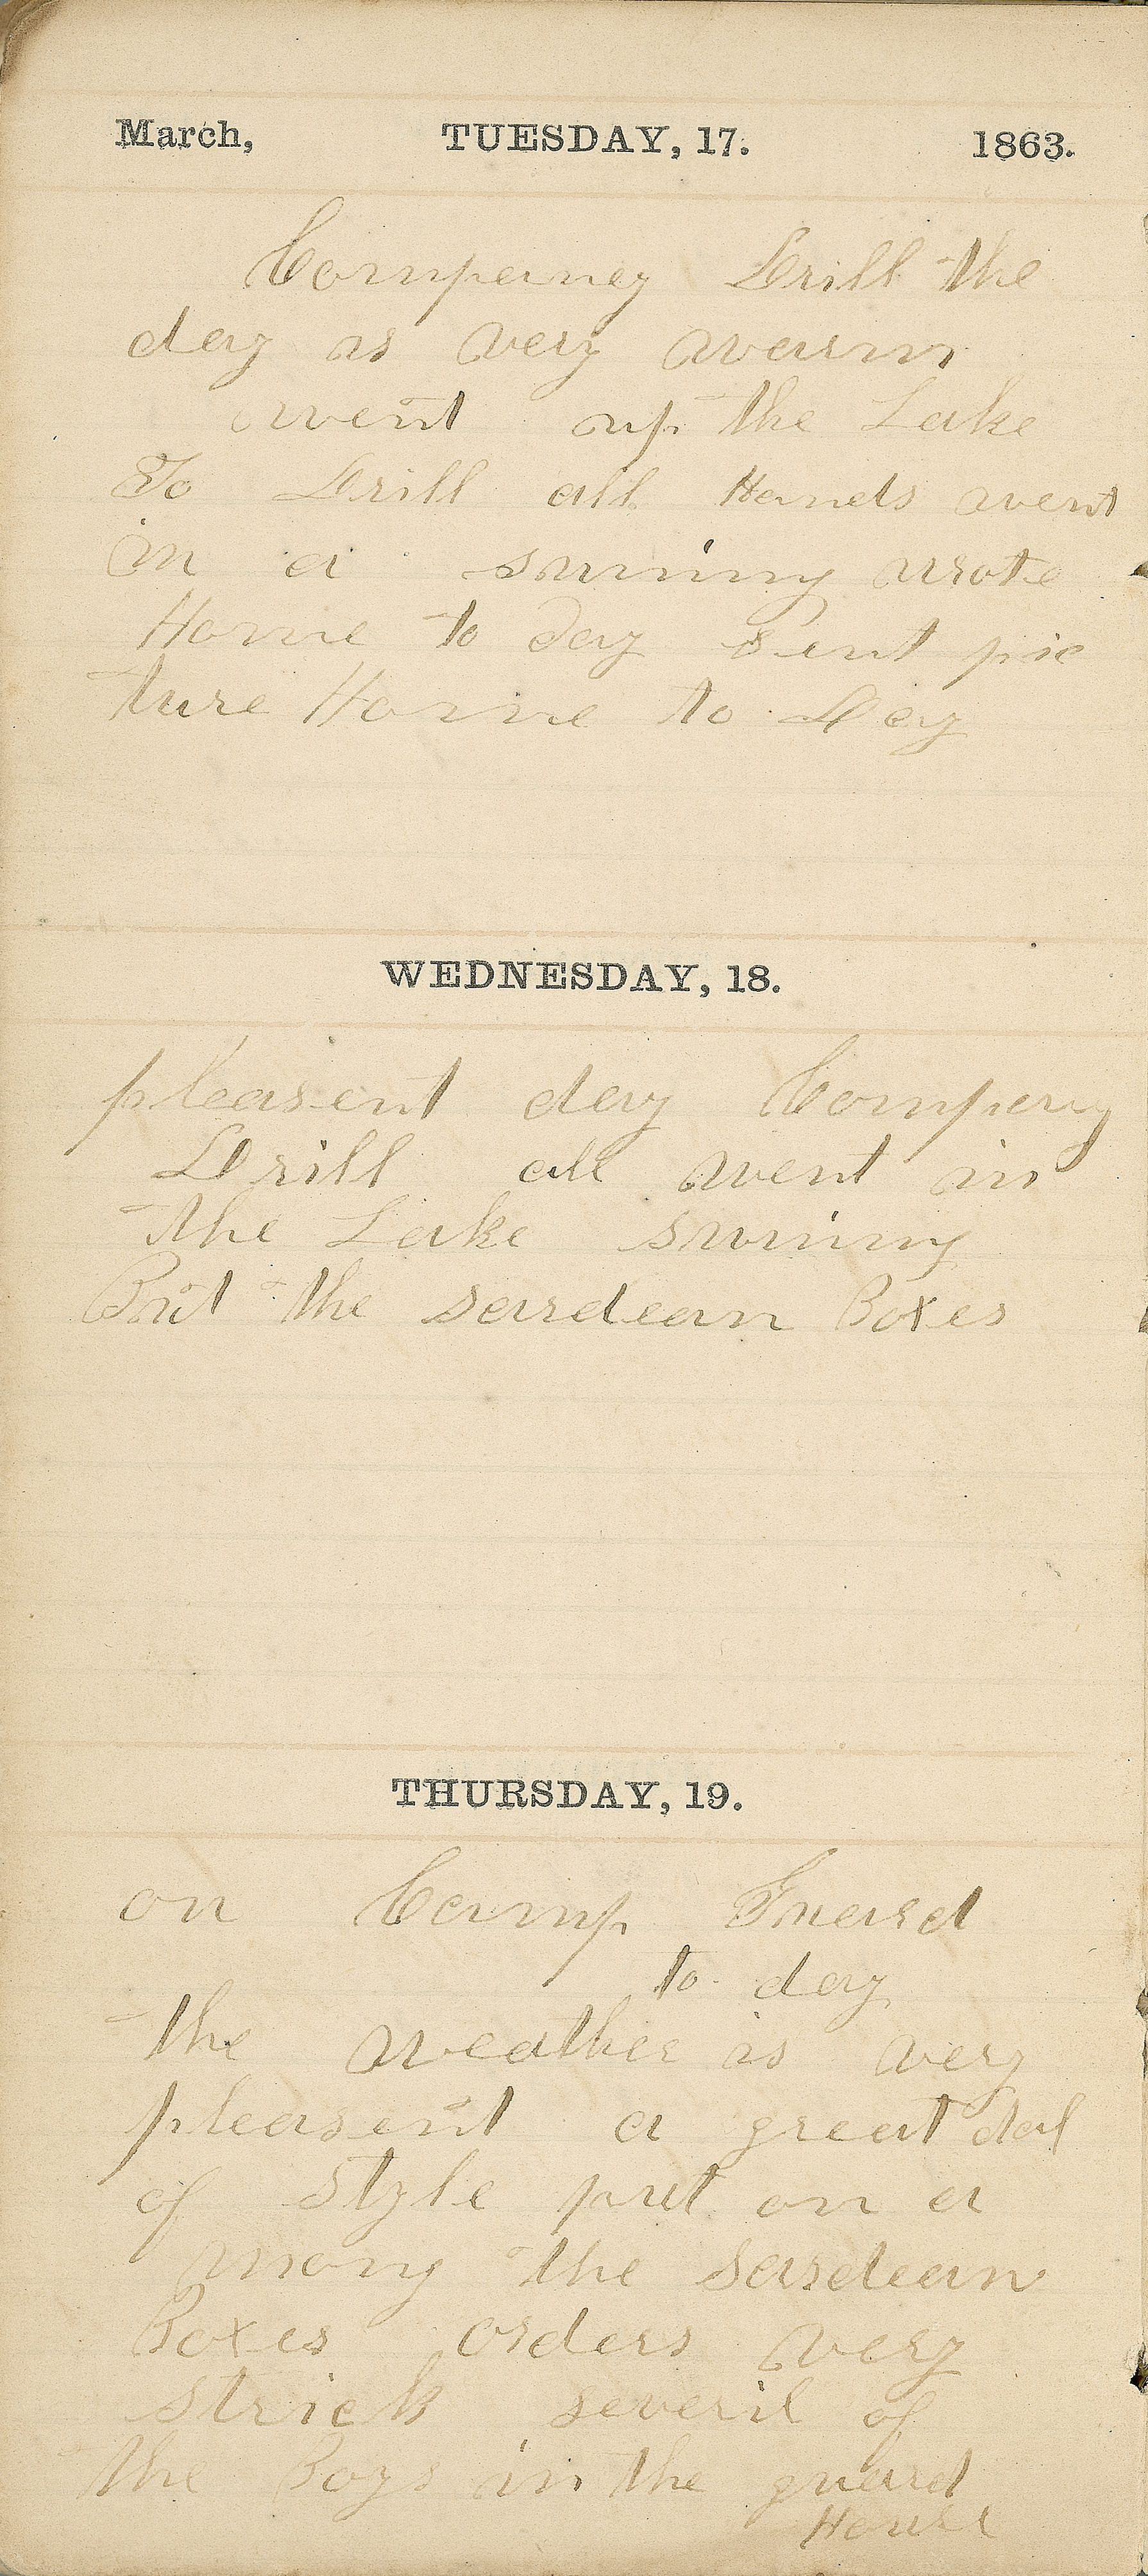 March, TUESDAY, 17. 1863.
Companey Drill the
day is very warm
went up the Lake
To Drill all Hands went
in a swiming wrote
Home to day sent pic
ture Home to Day
WEDNESDAY, 18.
pleasent day Company
Drill all went in
the Lake swiming
But the sardean Boxes
THURSDAY, 19.
on Camp Guard
to day
the weather is very
pleasent a great deal
of style put on a
mong the Sardean
Boxes orders very
strick severil of
the Boys in the guard
House